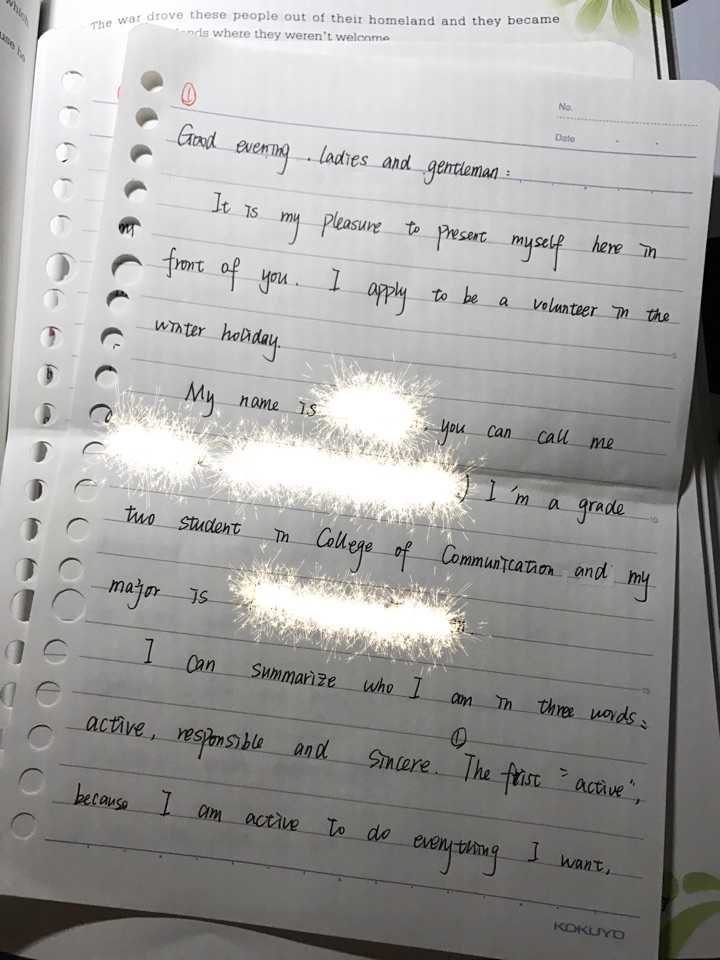 which
use he
The war drove these people out of their homeland and they became
ands where they weren't welcome
①
No.
Date
Good evening, ladies and gentleman:
It is my pleasure to present myself here in
front of you. I apply to be a volunteer in the
winter holiday.
My name is , you can call me
) I'm a grade
two student in College of Communication and my
major is
I can summarize who I am in three words:
active, responsible and sincere. The ① frist "active",
because I am active to do everything I want,
5
10
15
KOKUYO